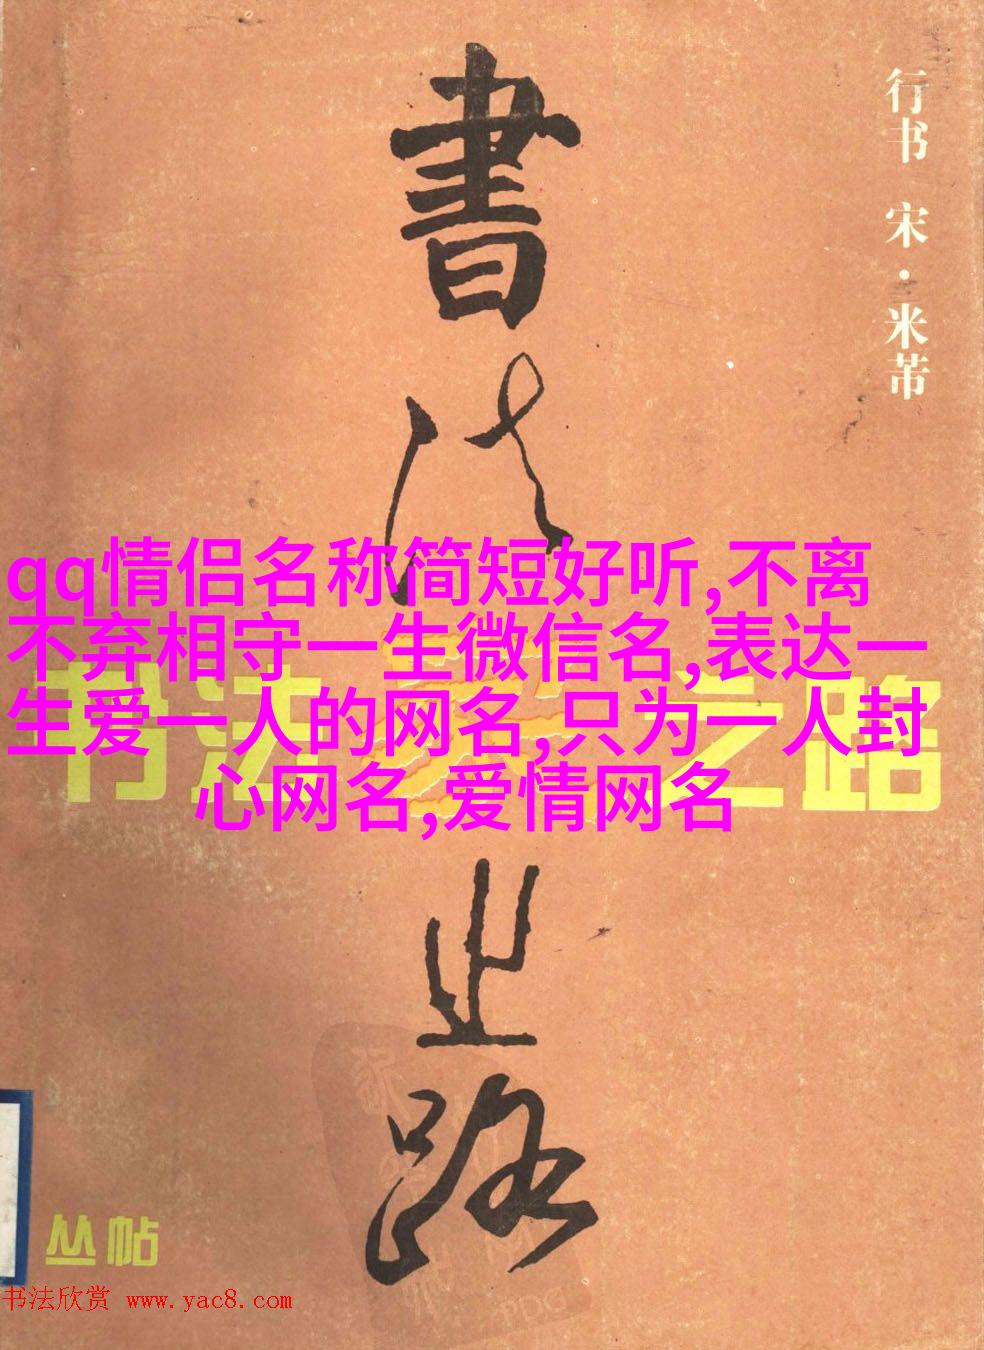 書法之路
行书 宋·米芾
qq情侣名称简短好听,不离
不弃相守一生微信名,表达一
生爱一人的网名,只为一人封
心网名,爱情网名
书法 之路
丛帖
书法欣赏 www.yac8.com